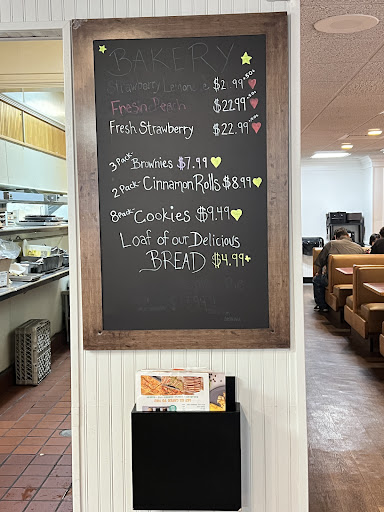 BAKERY
Strawberry Lemon
Fresh Peach $22.99
Fresh Strawberry $22.99
3 Pack- Brownies $7.99
2 Pack- Cinnamon Rolls $8.99
8 Pack Cookies $9.49
Loaf of our Delicious
BREAD $4.99+